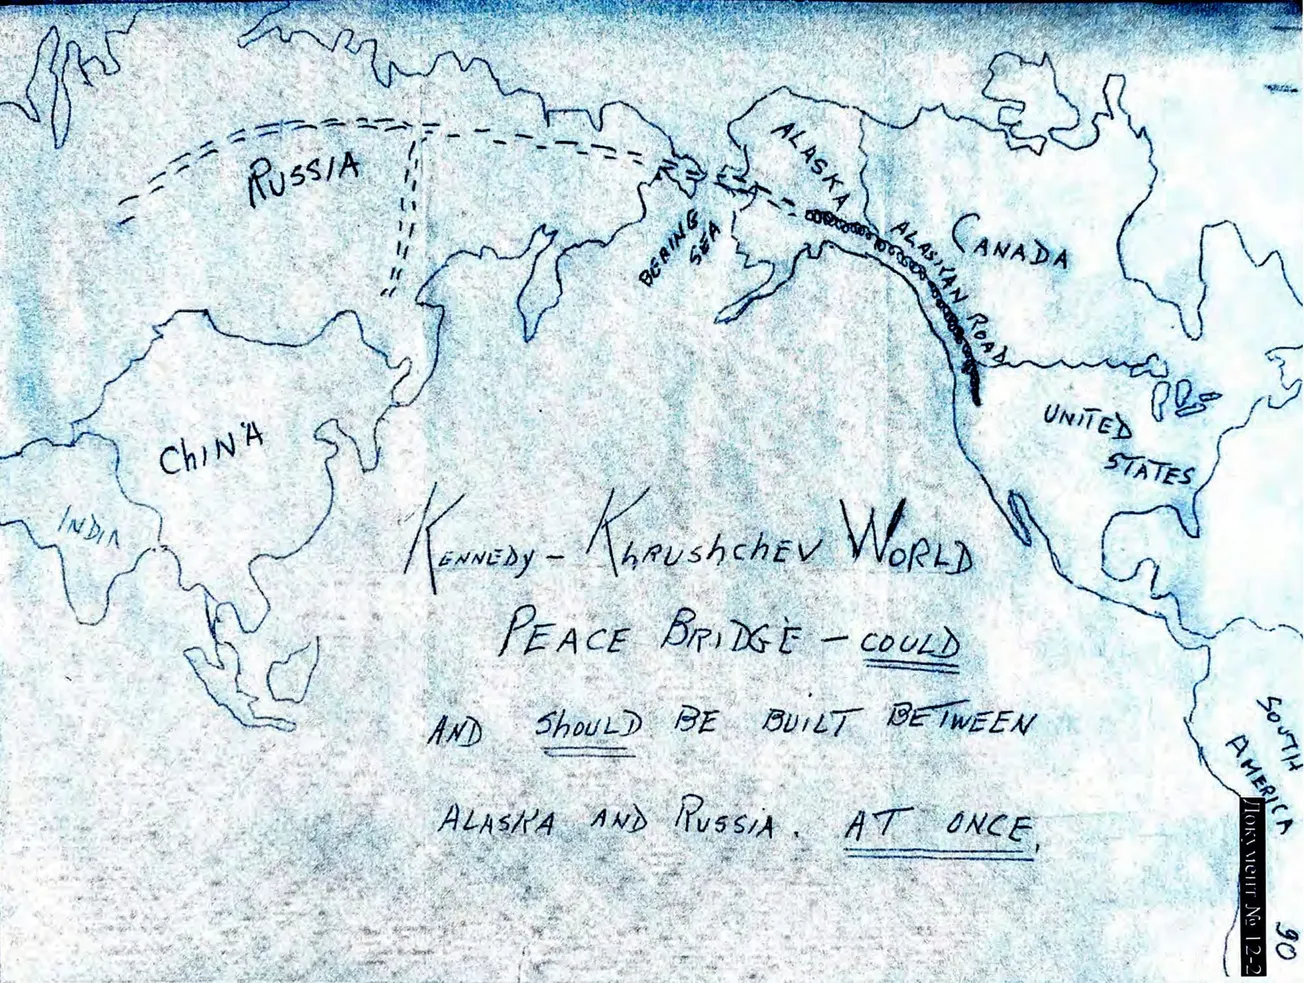 RUSSIA
ALASKA
BERING
SEA
CANADA
ALASKAN ROAD
CHINA
INDIA
UNITED
STATES
KENNEDY – KhRUShChEV WORLD
PEACE BRIDGE – COULD
AND ShOULD BE BUILT BETWEEN
ALASKA AND RUSSIA. AT ONCE.
SOUTH
AMERICA
Документ № 12-2
90